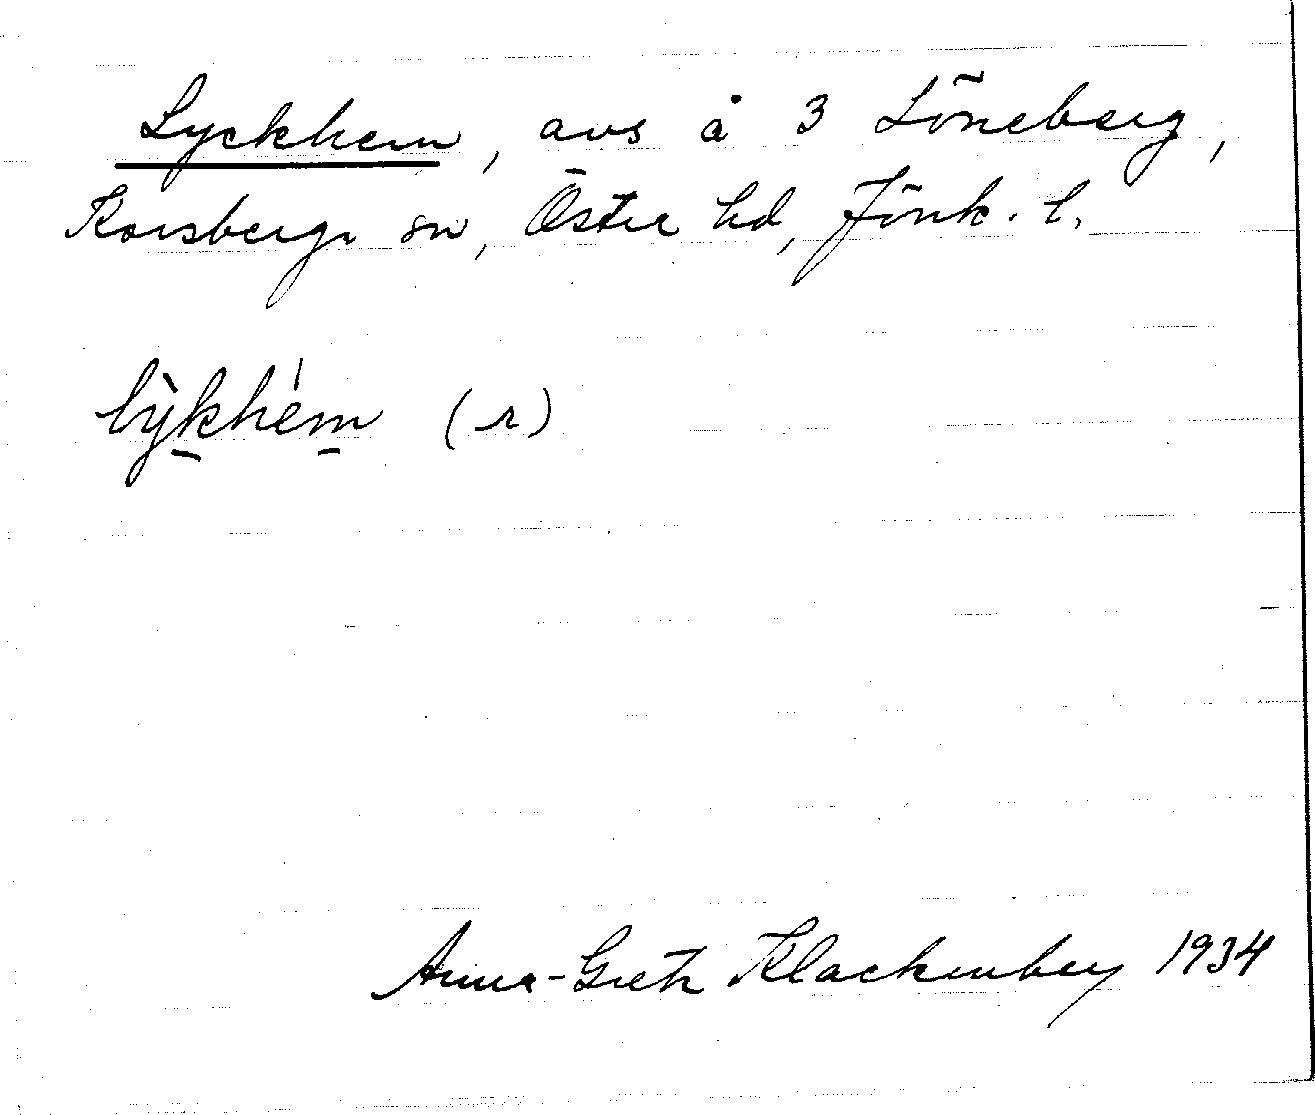 Lyckhem, avs å 3 Löneberg,
Korsberga sn, Östra hd, Jönk. l.
lỳkhém (r)
Anna-Greta Klackenberg 1934